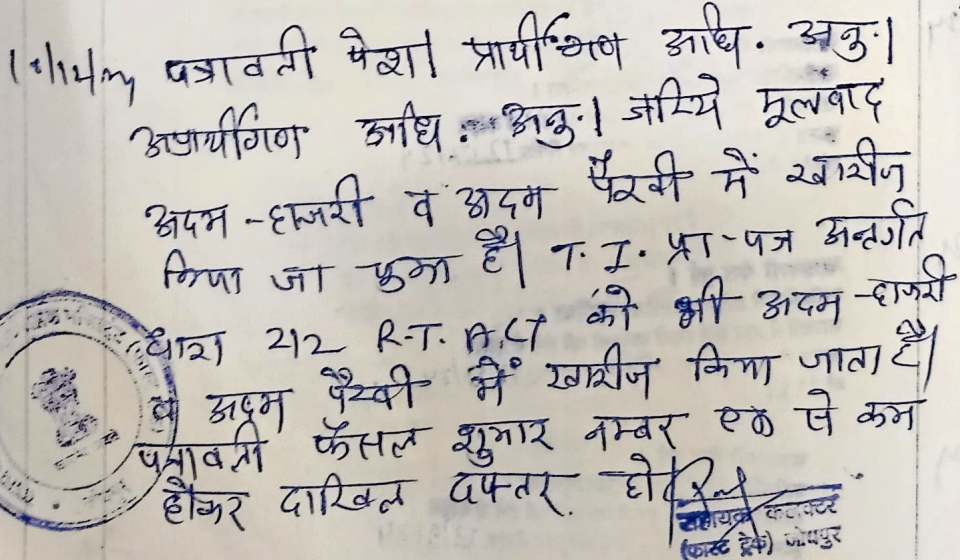 पत्रावली पेश। प्रार्थीगण अधि. अनु.।
अप्रार्थीगण अधि. अनु.। जरिये मूलवाद
अदम-हाजरी व अदम पैरवी में खारीज
किया जा चुका है। T. I. प्रा-पत्र अन्तर्गत
धारा 212 R.T. Act को भी अदम-हाजरी
व अदम पैरवी में खारीज किया जाता है।
पत्रावली फैसल शुमार नम्बर एक से कम
होकर दाखिल दफ्तर. हो।
सहायक कलक्टर
(फास्ट ट्रेक) जोधपुर